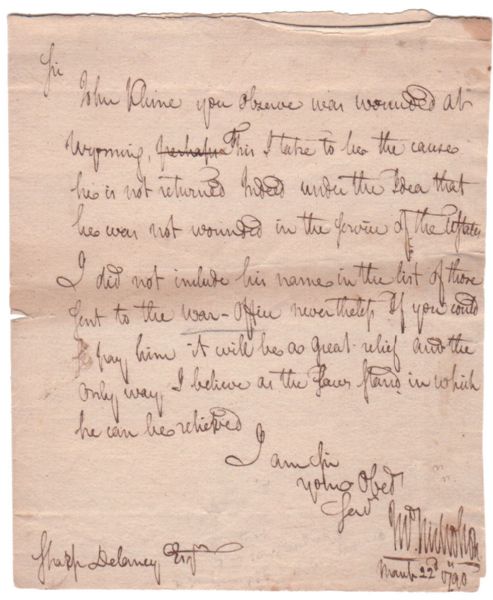 Sir
John Kline you observe was wounded at
Wyoming, perhaps This I take to be the cause
he is not returned Indeed under the Idea that
he was not wounded in the service of the UStates
I did not include his name in the list of those
sent to the war-Office nevertheless If you could
pay him it will be a great relief and the
only way I believe as the Laws stand in which
he can be relieved
I am Sir
your Obed
Serv
Jno Nicholson
March 22d 1790
Sharp Delaney Esqr